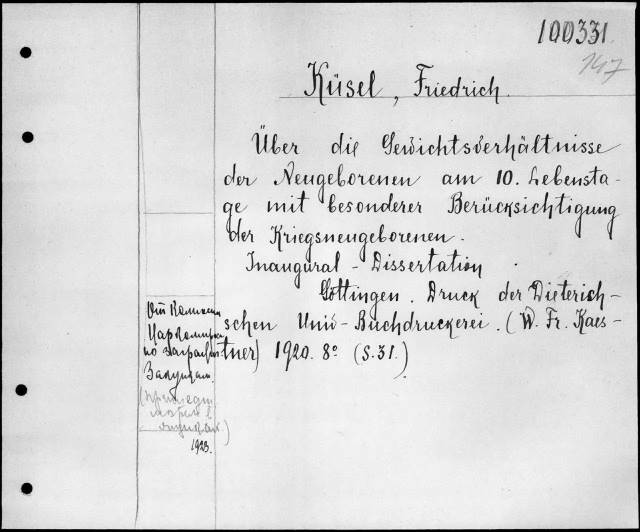 100331.
147
Küsel, Friedrich.
Über die Gewichtsverhältnisse
der Neugeborenen am 10. Lebensta-
ge mit besonderer Berücksichtigung
der Kriegsneugeborenen.
Inaugural-Dissertation
Göttingen. Druck der Dieterich-
schen Univ-Buchdruckerei. (W. Fr. Kaes-
tner) 1920. 8° (S. 31.)
От
по
Закупкам.
1923.